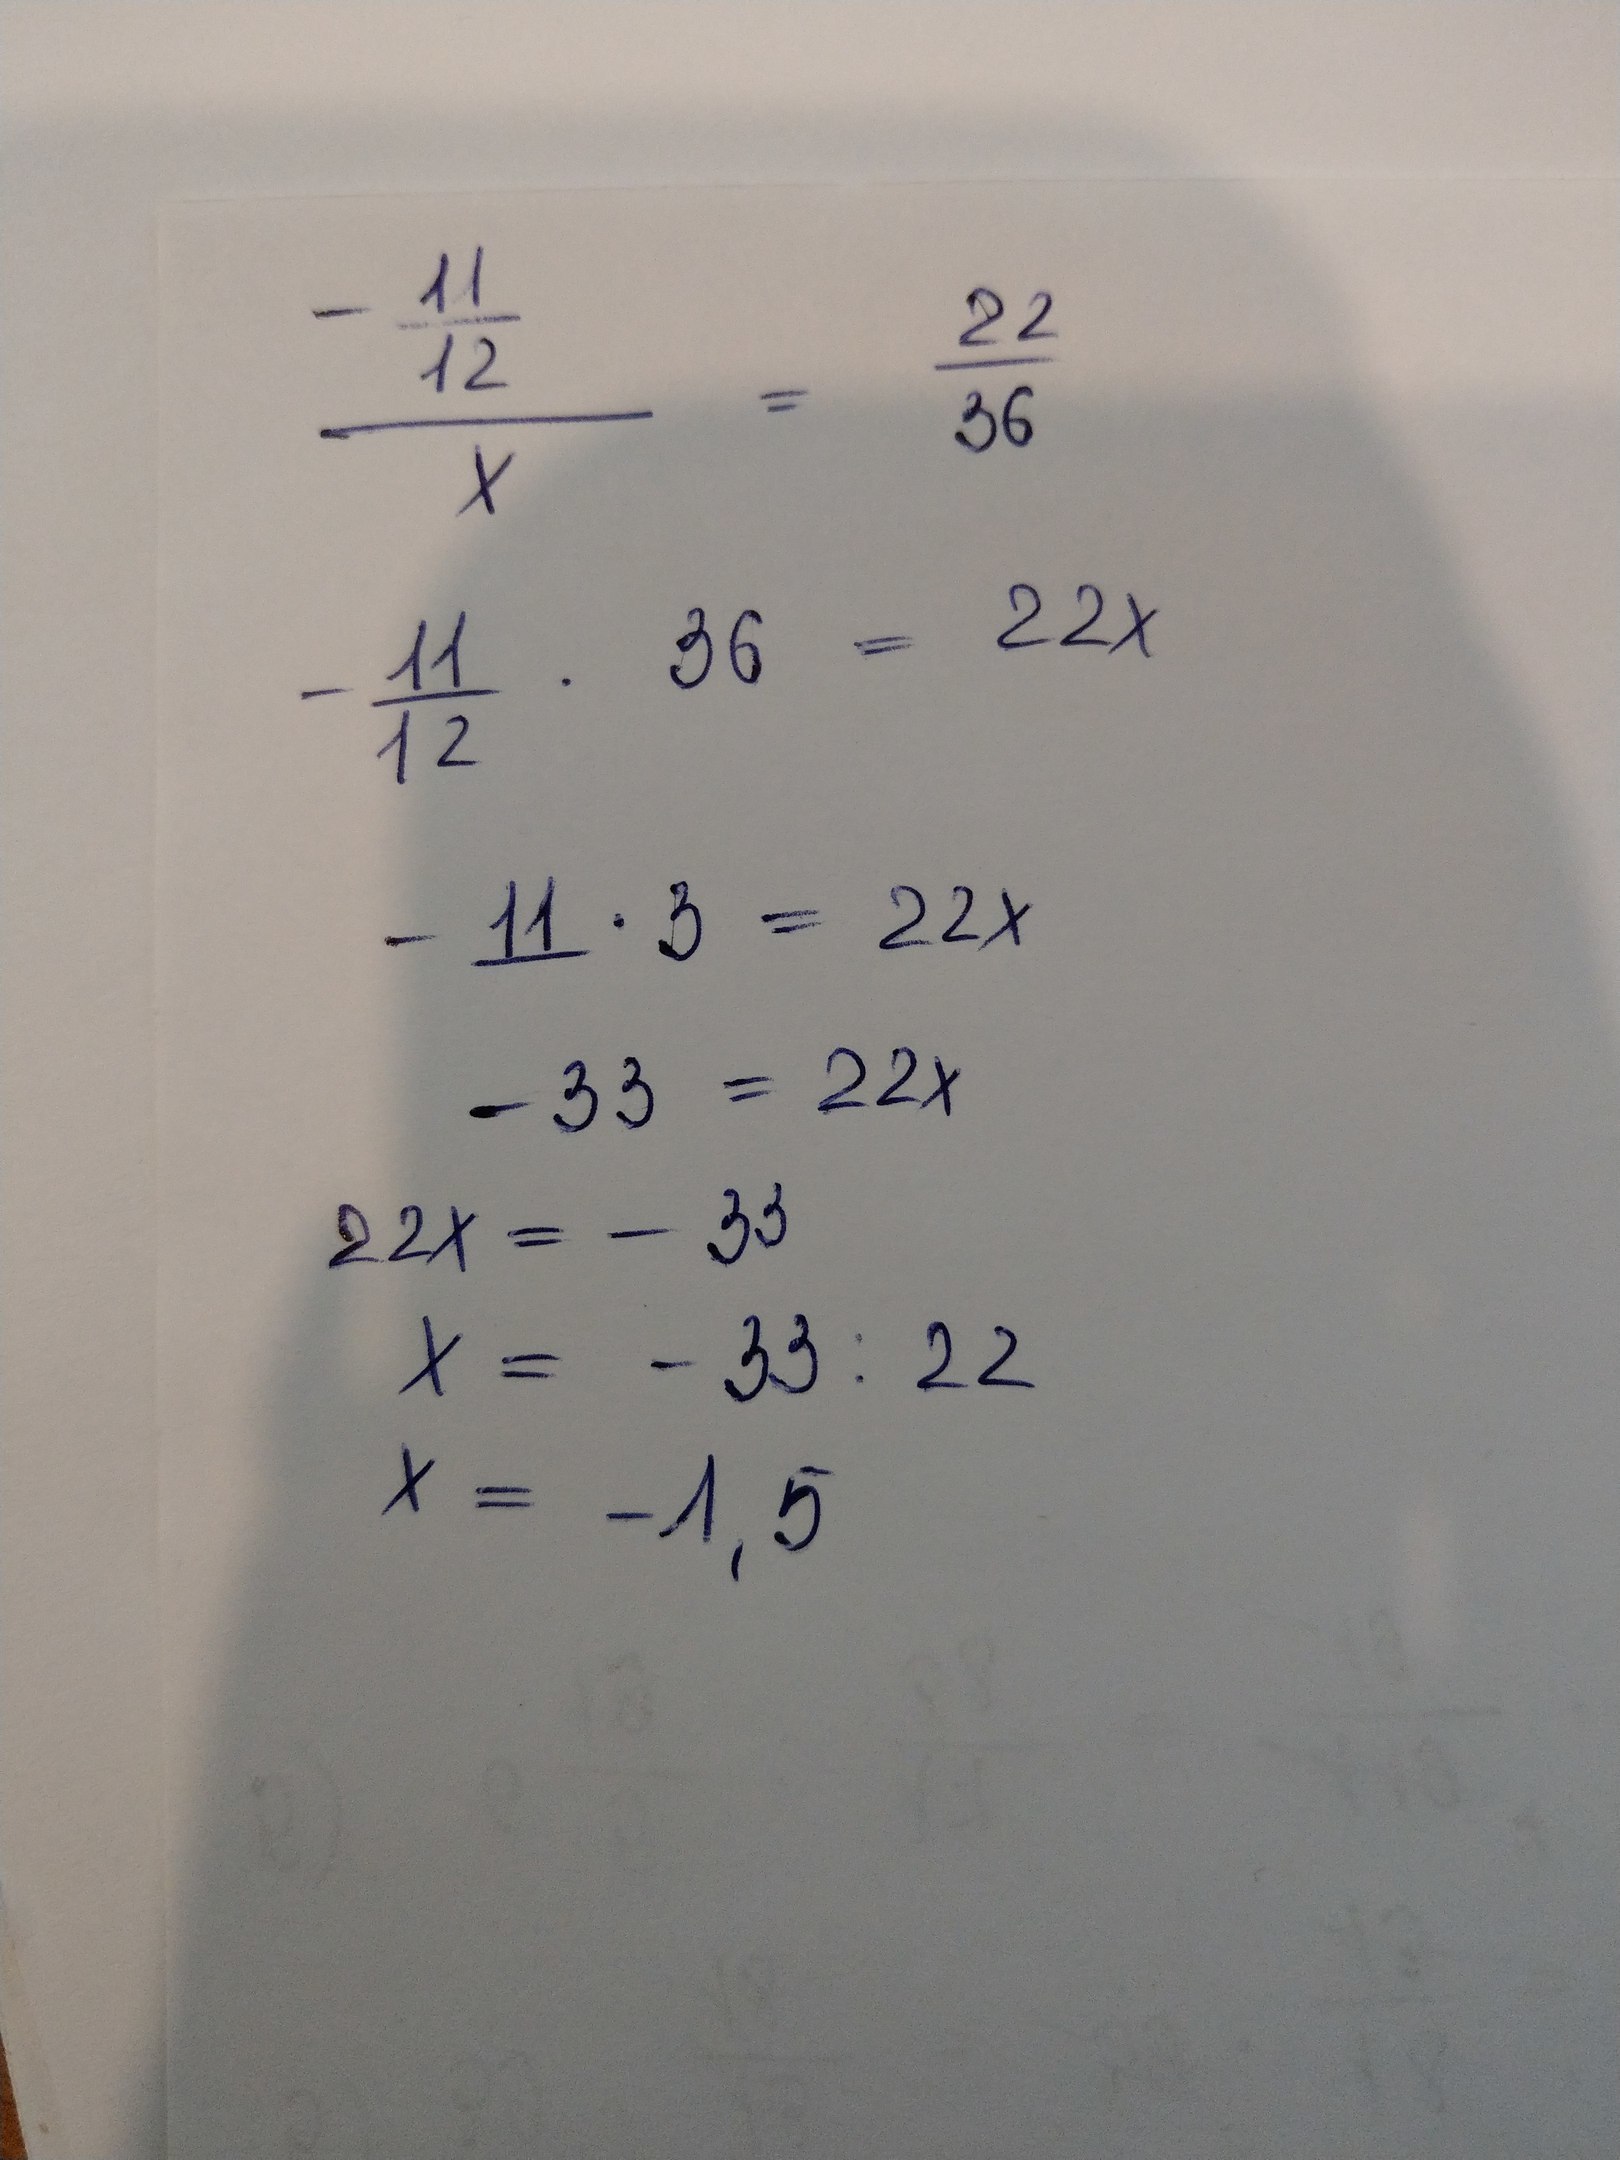 - 11/12 / x = 22/36
- 11/12 · 36 = 22x
- 11 · 3 = 22x
- 33 = 22x
22x = - 33
x = - 33 : 22
x = -1,5